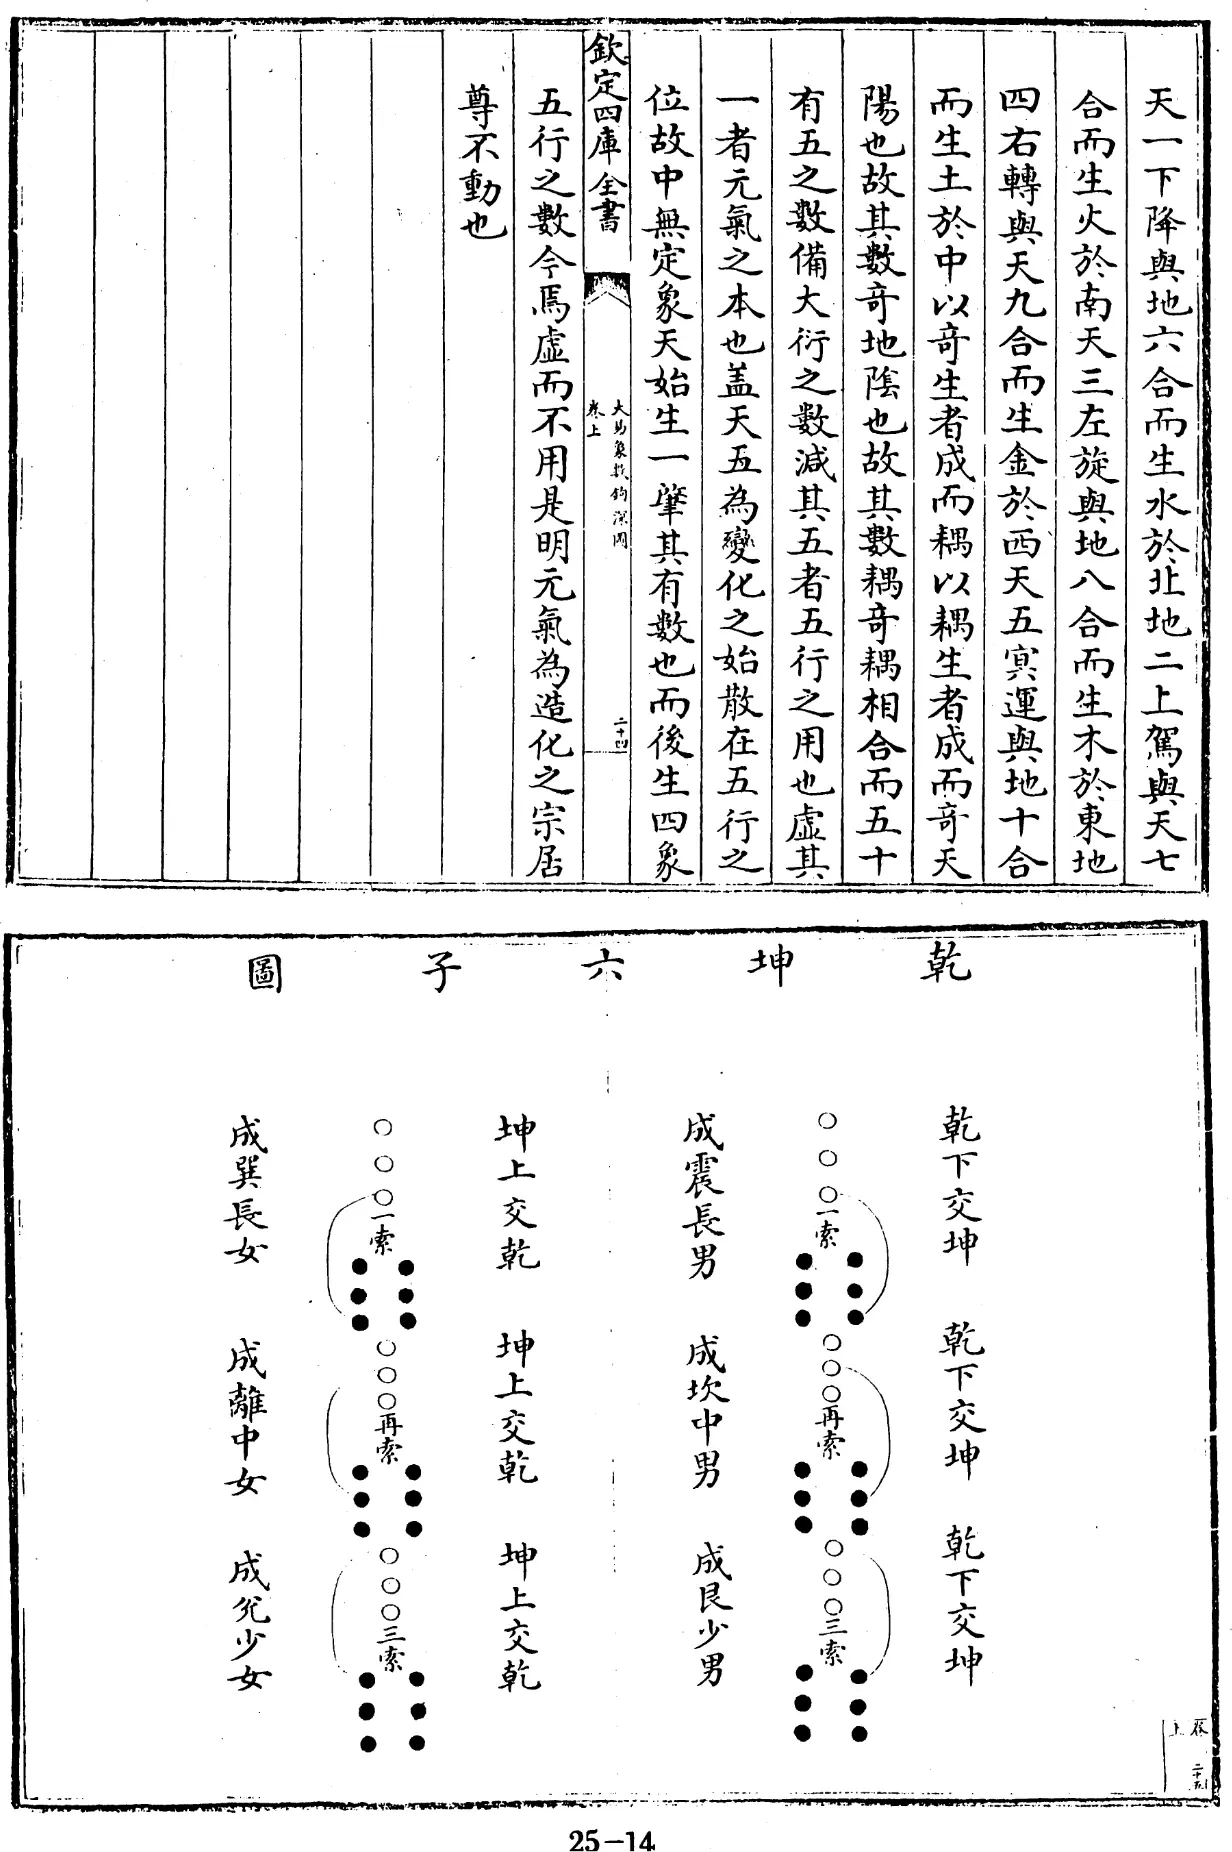 天一下降與地六合而生水於北地二上駕與天七
合而生火於南天三左旋與地八合而生木於東地
四右轉與天九合而生金於西天五㝠運與地十合
而生土於中以竒生者成而耦以耦生者成而竒天
陽也故其數竒地隂也故其數耦竒耦相合而五十
有五之數備大衍之數減其五者五行之用也虛其
一者元氣之本也盖天五為變化之始散在五行之
位故中無定象天始生一肇其有數也而後生四象
欽定四庫全書
大易象數鈎深圖
卷上
二十四
五行之數今焉虛而不用是明元氣為造化之宗居
尊不動也
乾坤六子圖
乾下交坤
乾下交坤
乾下交坤
一索
再索
三索
成震長男
成坎中男
成艮少男
坤上交乾
坤上交乾
坤上交乾
一索
再索
三索
成巽長女
成離中女
成兊少女
卷上
二十五
25-14